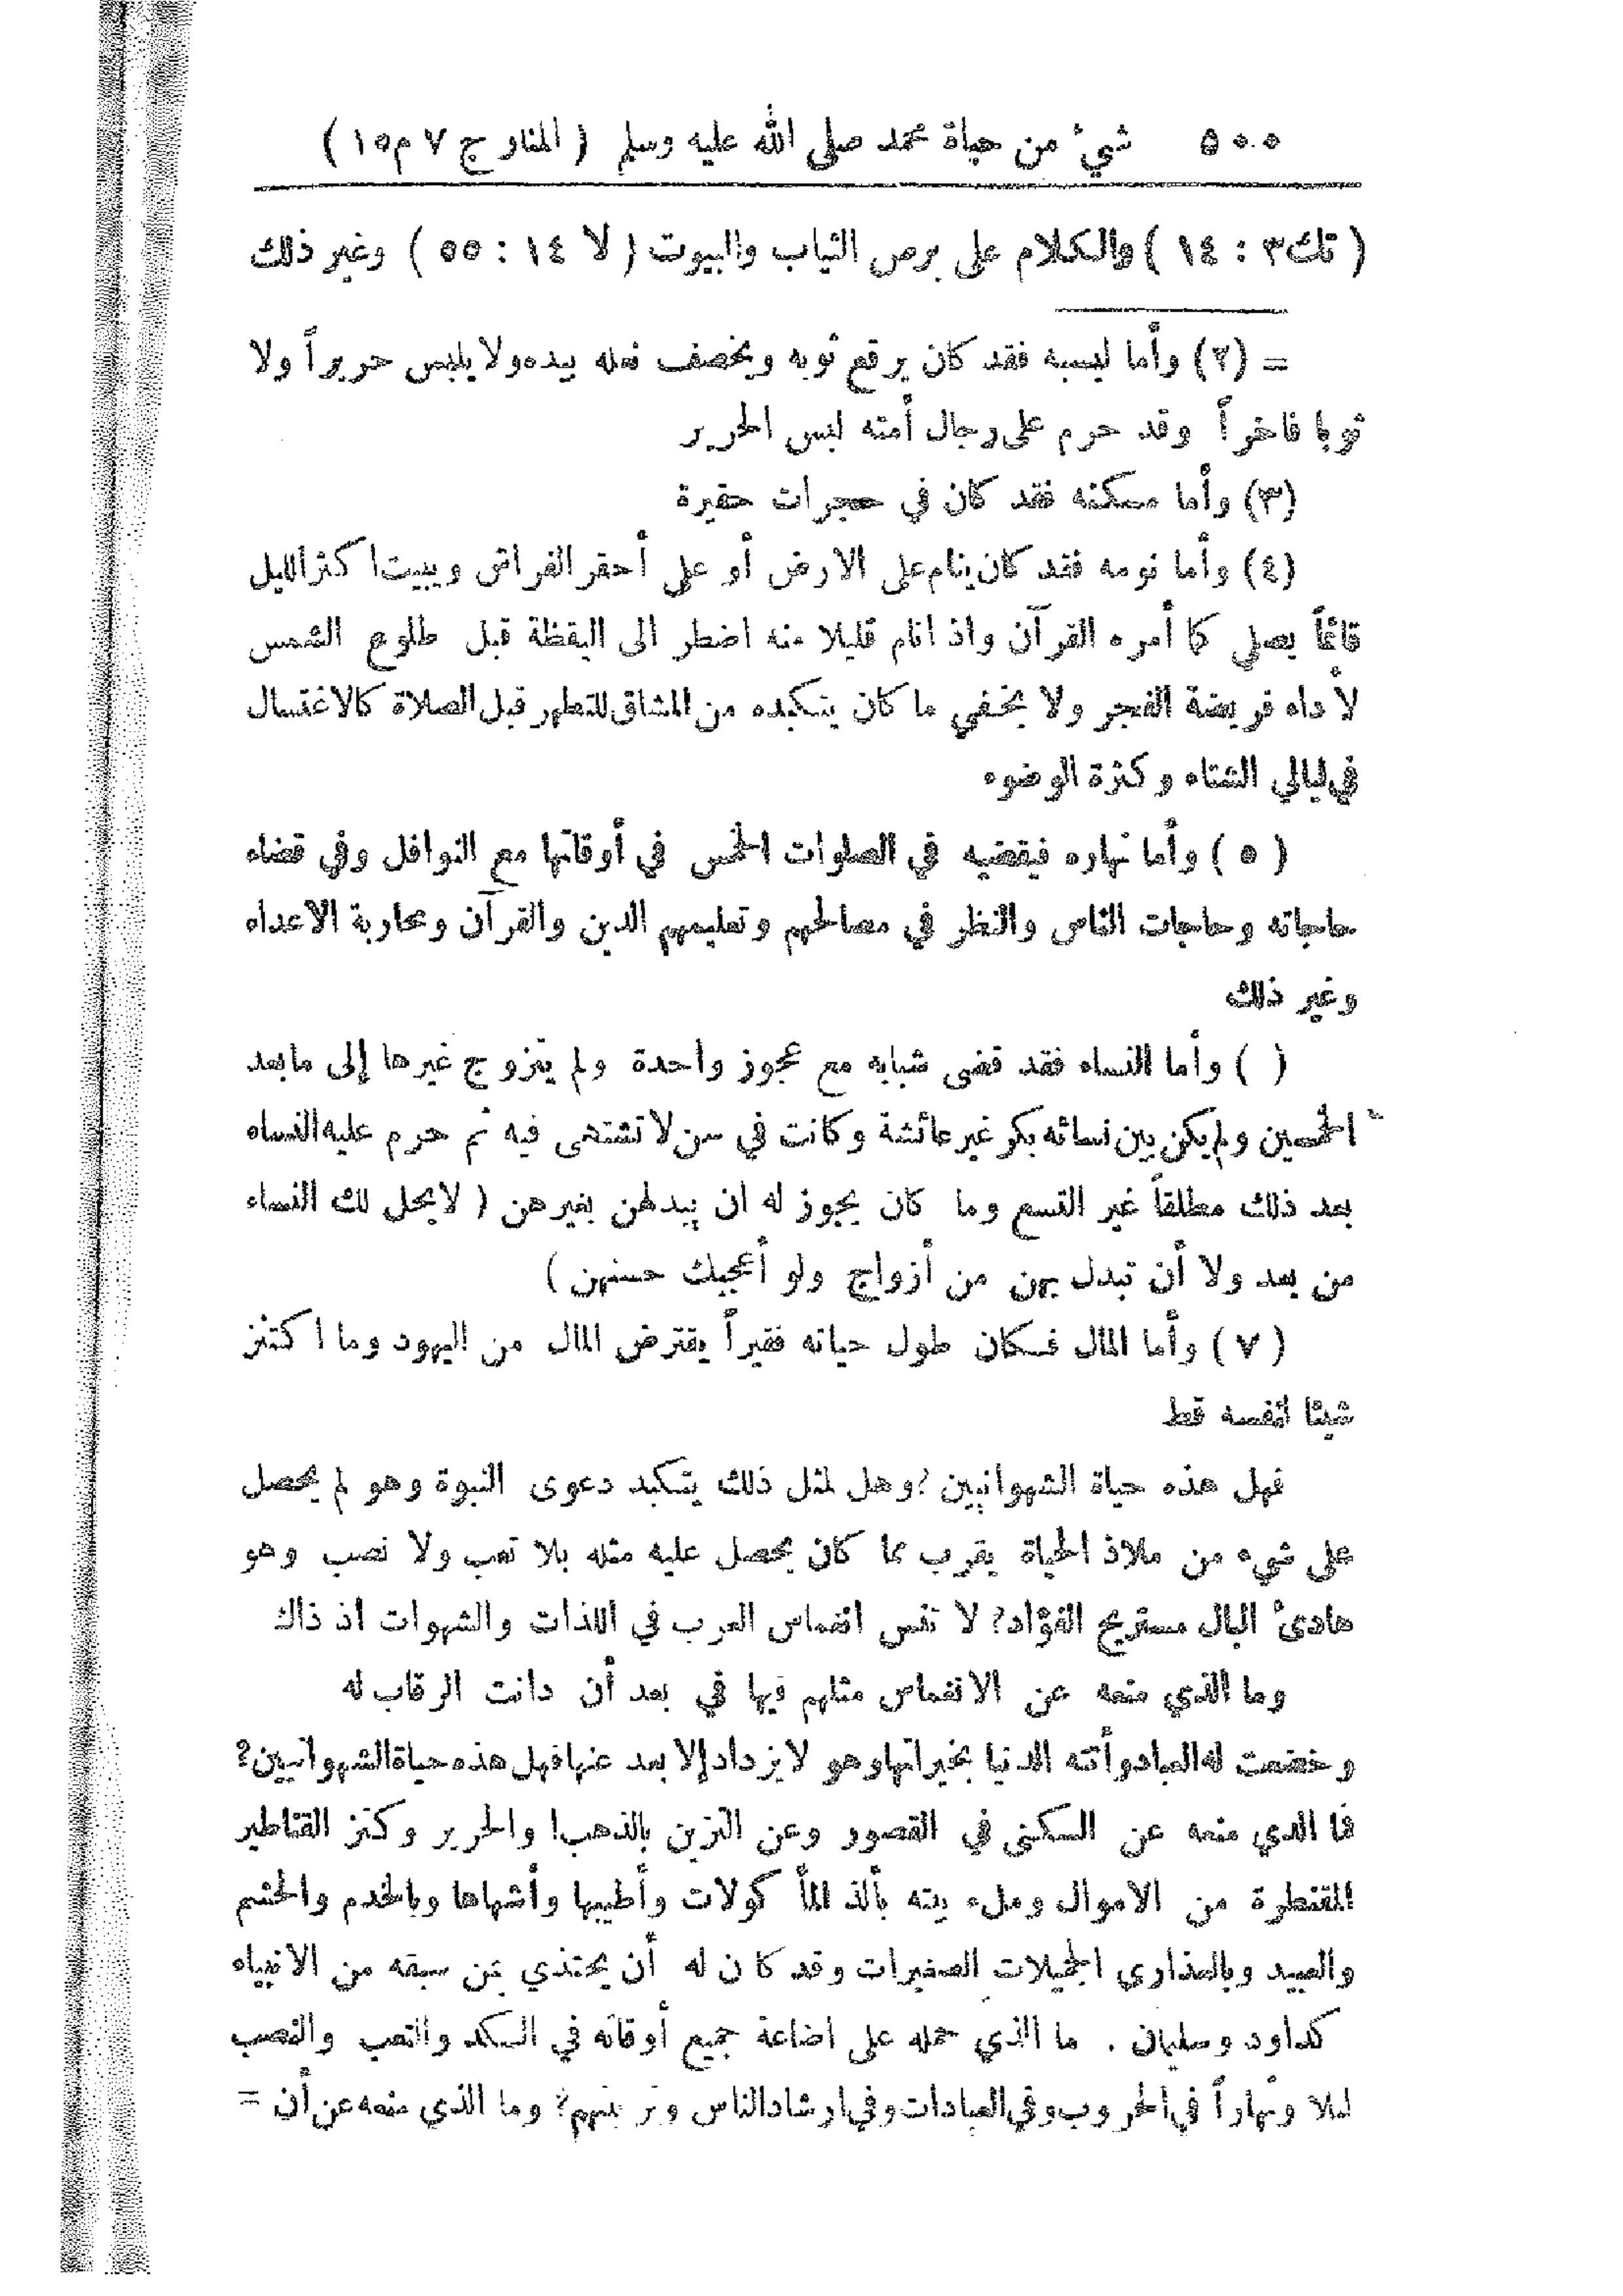 ٥٠٠ شيء من حياة محمد صلى الله عليه وسلم ( المنار ج ٧ م ١٥ )
( تك ٣ : ١٤ ) والكلام على برص الثياب والبيوت ( لا ١٤ : ٥٥ ) وغير ذلك
= (٢) وأما لبسه فقد كان يرقع ثوبه ويخصف نعله بيده ولا يلبس حريراً ولا
ثوبا فاخراً وقد حرم على رجال أمته لبس الحرير
(٣) وأما مسكنه فقد كان في حجرات حقيرة
(٤) وأما نومه فقد كان ينام على الارض أو على أحقر الفراش ويبيت اكثر الليل
قائماً يصلي كما أمره القرآن واذا نام قليلا منه اضطر الى اليقظة قبل طلوع الشمس
لأداء فريضة الفجر ولا يخفى ما كان يتكبده من المشاق للتطهر قبل الصلاة كالاغتسال
في ليالي الشتاء وكثرة الوضوء
( ٥ ) وأما نهاره فيقضيه في الصلوات الخمس في أوقاتها مع النوافل وفي قضاء
حاجاته وحاجات الناس والنظر في مصالحهم وتعليمهم الدين والقرآن ومحاربة الاعداء
وغير ذلك
( ) وأما النساء فقد قضى شبابه مع عجوز واحدة ولم يتزوج غيرها إلى مابعد
الخمسين ولم يكن بين نسائه بكر غير عائشة وكانت في سن لا تشتهى فيه ثم حرم عليه النساء
بعد ذلك مطلقاً غير التسع وما كان يجوز له ان يبدلهن بغيرهن ( لا يحل لك النساء
من بعد ولا أن تبدل بهن من أزواج ولو أعجبك حسنهن )
( ٧ ) وأما المال فكان طول حياته فقيراً يقترض المال من اليهود وما اكتنز
شيئا لنفسه قط
فهل هذه حياة الشهوانيين ؟ وهل لمثل ذلك يتكبد دعوى النبوة وهو لم يحصل
على شيء من ملاذ الحياة يقرب مما كان يحصل عليه مثله بلا تعب ولا نصب وهو
هادئ البال مستريح الفؤاد؟ لا تنس انغماس العرب في اللذات والشهوات اذ ذاك
وما الذي منعه عن الانغماس مثلهم فيها في بعد أن دانت الرقاب له
وخضعت له العباد وأتته الدنيا بخيراتها وهو لا يزداد إلا بعد عنها فهل هذه حياة الشهوانيين؟
فما الذي منعه عن السكنى في القصور وعن التزين بالذهب! والحرير وكنز القناطير
المقنطرة من الاموال وملء بيته بألذ المأكولات وأطيبها وأشهاها وبالخدم والحشم
والعبيد وبالعذارى الجميلات الصغيرات وقد كان له أن يحتذي بمن سبقه من الانبياء
كداود وسليمان . ما الذي حمله على اضاعة جميع أوقاته في الكد والتعب والنصب
ليلا ونهاراً في الحروب وفي العبادات وفي ارشاد الناس وتربيتهم؟ وما الذي منعه عن أن =